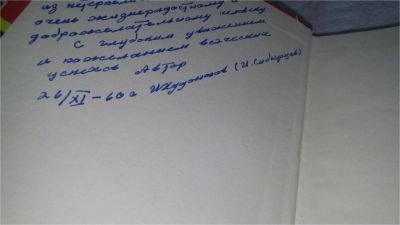 очень жизнерадостному и
доброжелательному человеку
С глубоким уважением
и пожеланием всяческих
успехов Автор
26/XI-60 г. (И. Сибирцев)